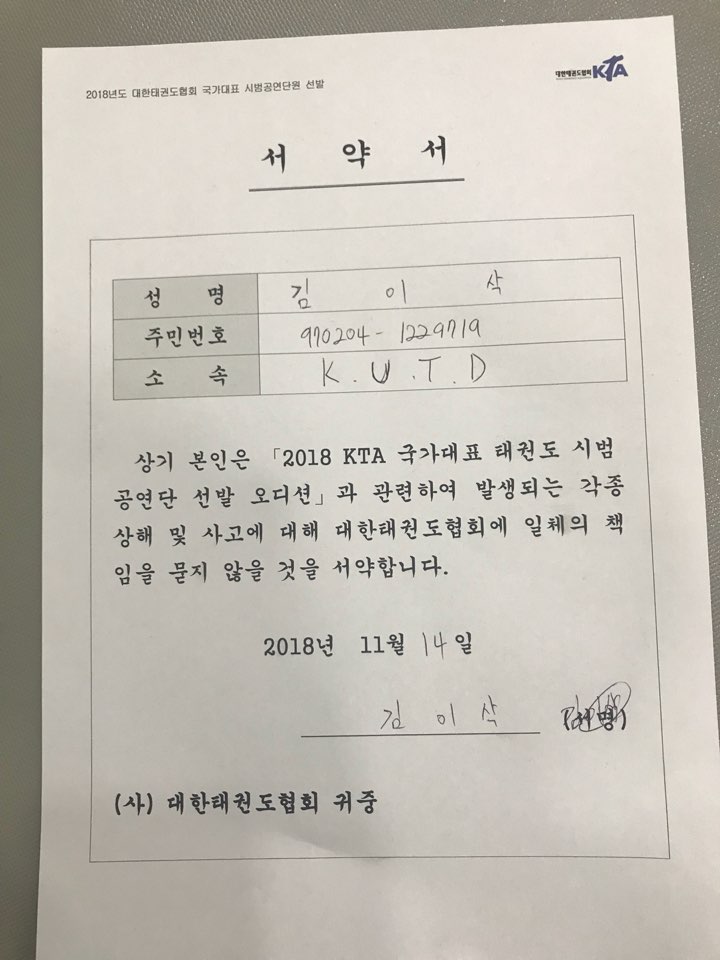 2018년도 대한태권도협회 국가대표 시범공연단원 선발
대한태권도협회 KTA
서 약 서
성 명 김 이 삭
주민번호 970204-1229719
소 속 K.U.T.D
상기 본인은 「2018 KTA 국가대표 태권도 시범
공연단 선발 오디션」과 관련하여 발생되는 각종
상해 및 사고에 대해 대한태권도협회에 일체의 책
임을 묻지 않을 것을 서약합니다.
2018년 11월 14일
김 이 삭
(사) 대한태권도협회 귀중